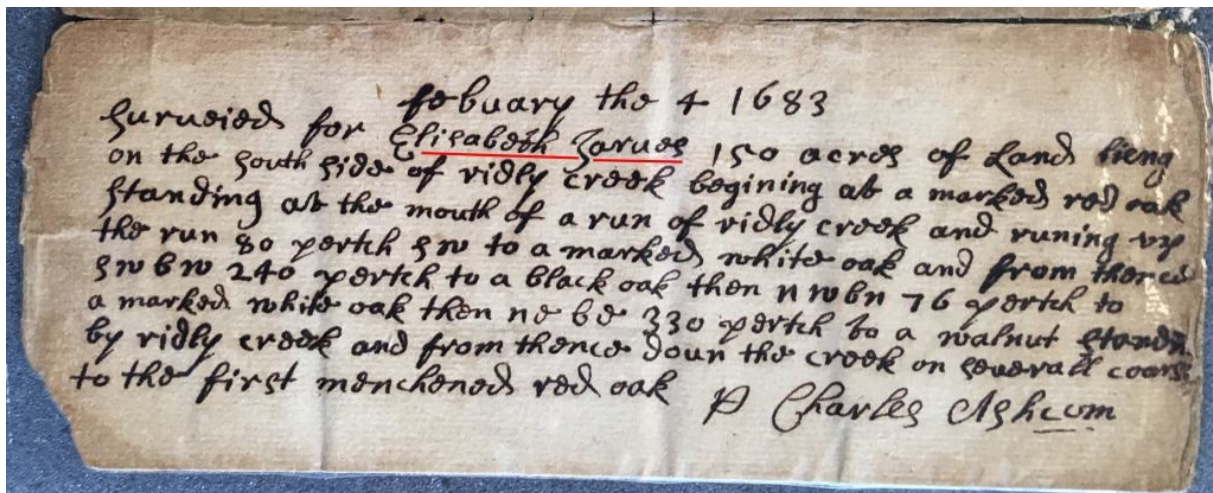 febuary the 4 1683
Surueied for Elisabeth Jarues 150 acres of Land lieng
on the south side of ridly creek begining at a marked red oak
standing at the mouth of a run of ridly creek and runing vp
the run 80 pertch sw to a marked white oak and from thence
sw b w 240 pertch to a black oak then n w b n 76 pertch to
a marked white oak then ne b e 330 pertch to a walnut
by ridly creek and from thence doun the creek on seuerall
to the first menchened red oak
P Charles Ashcom